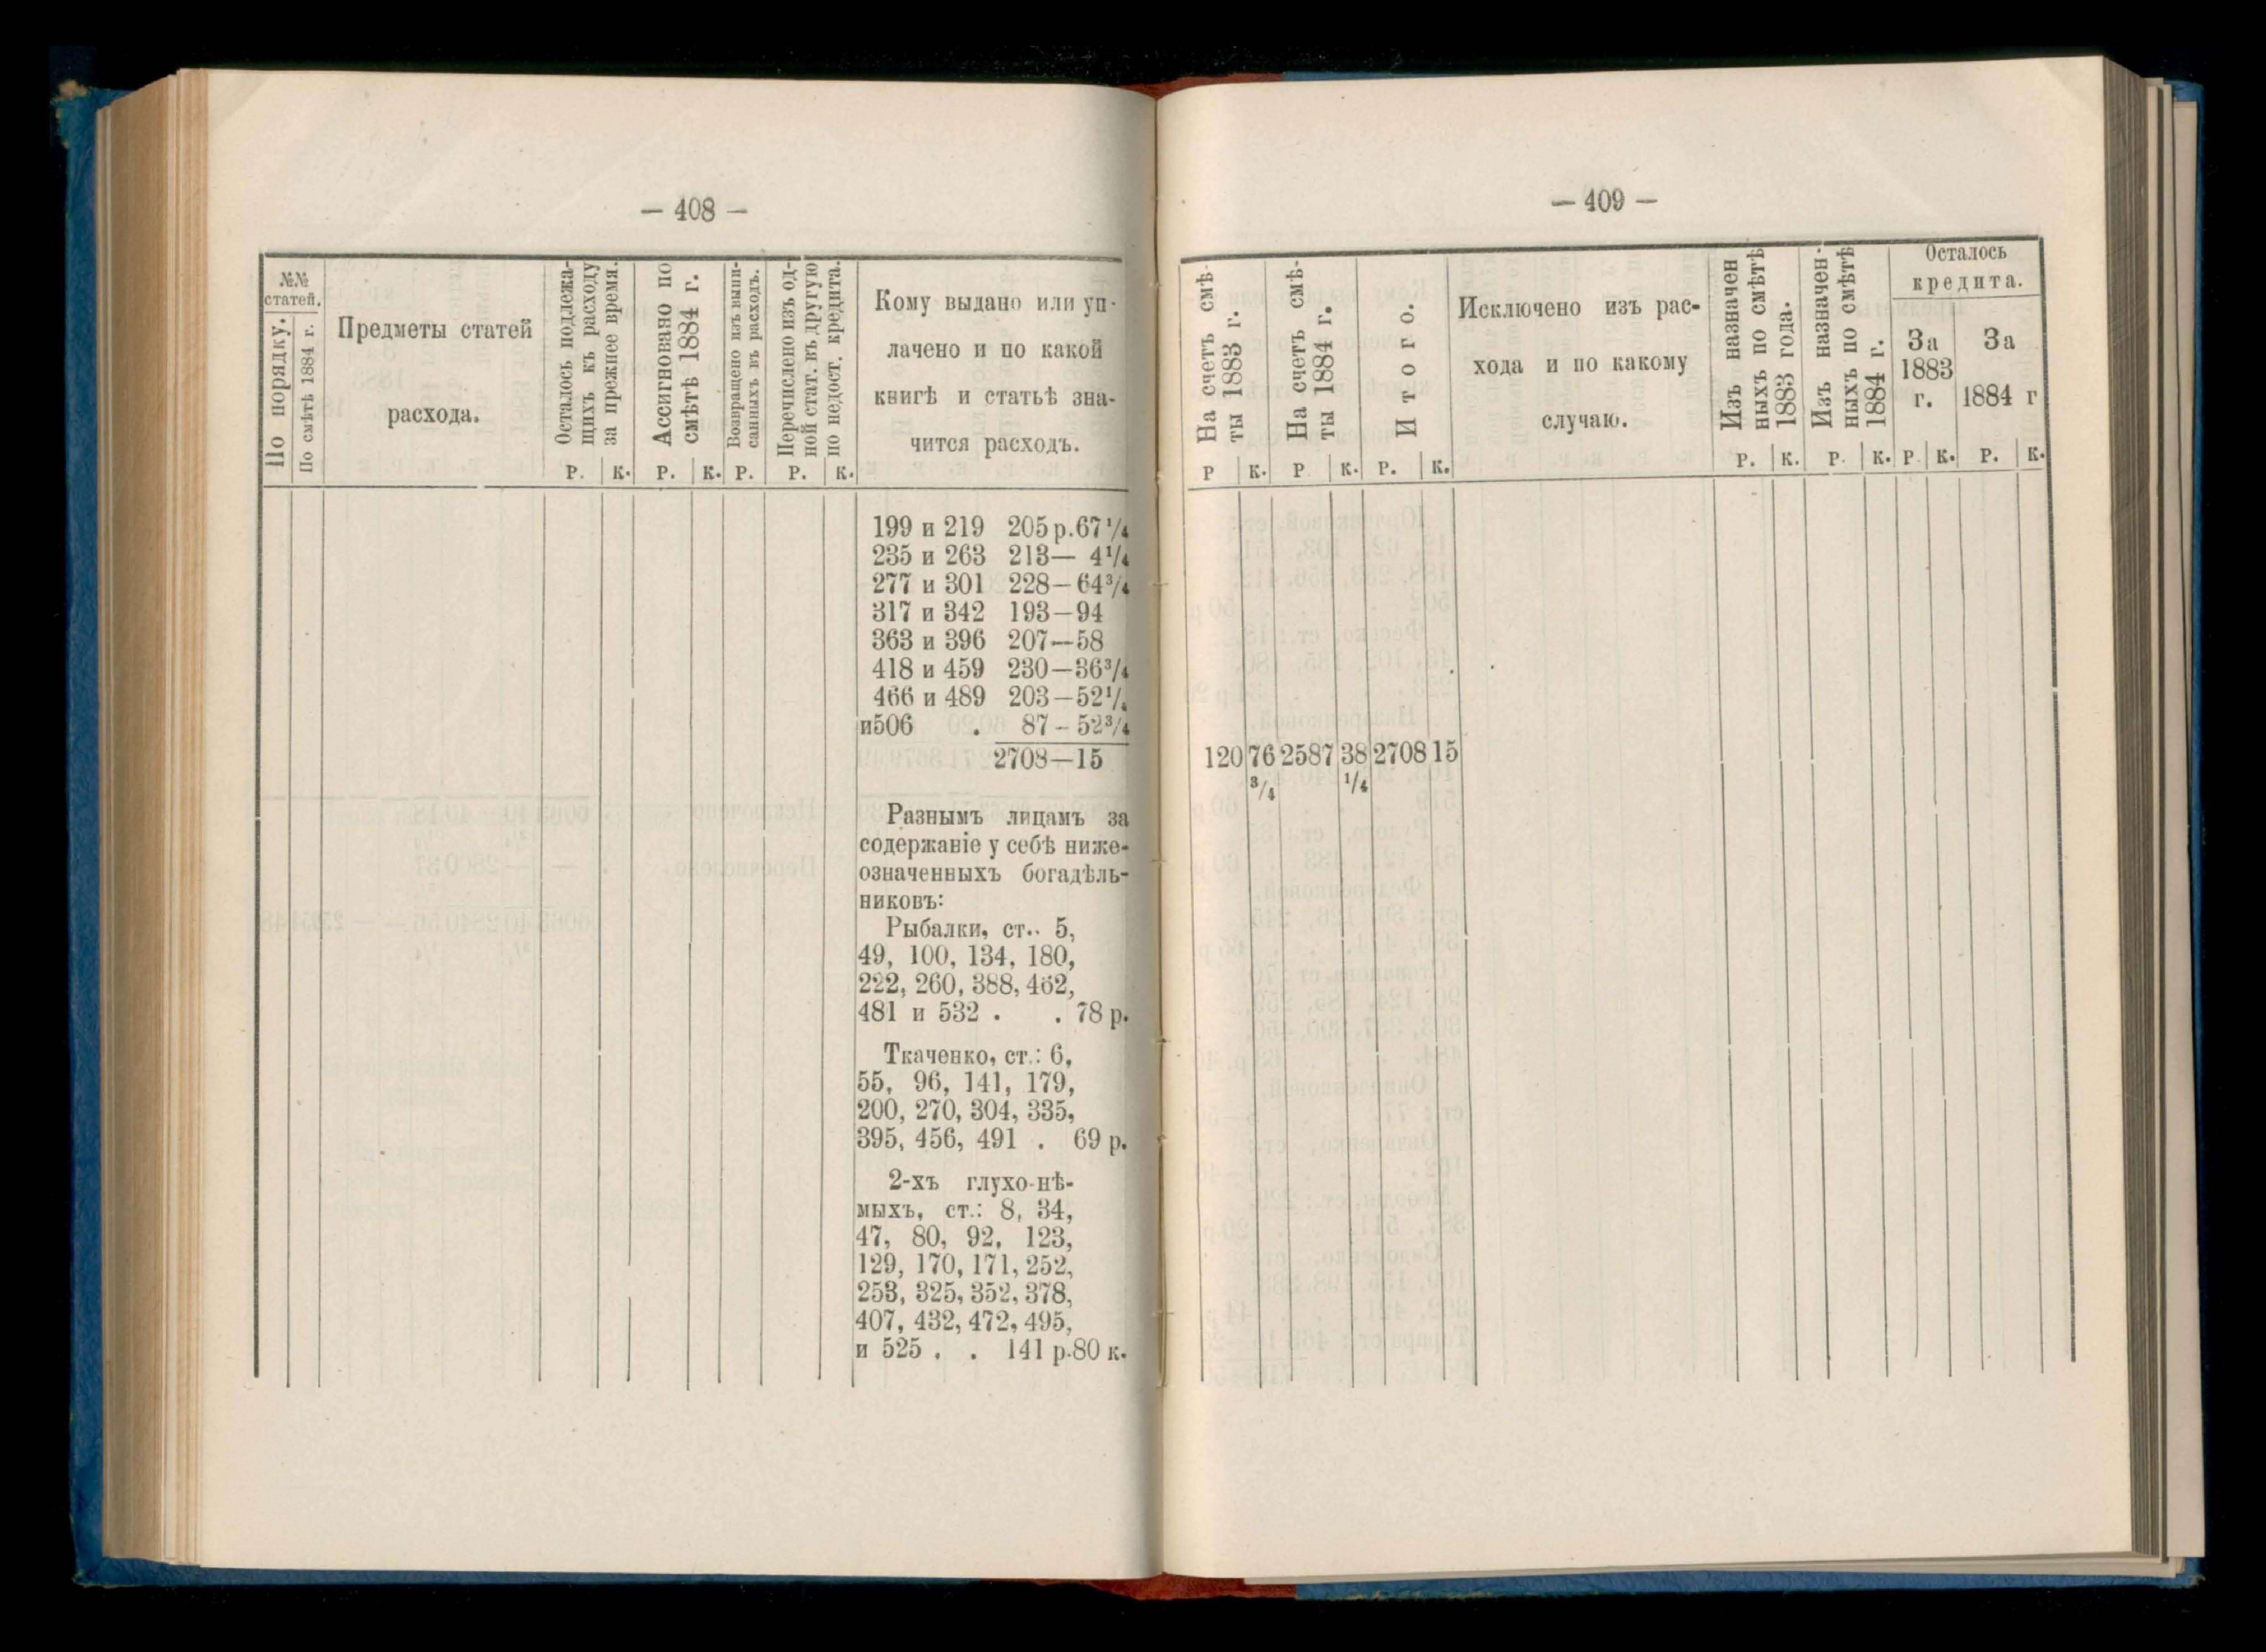 — 408 —
№№
статей.
По порядку.
По смѣтѣ 1884 г.
Предметы статей
расхода.
Осталось подлежа-
щихъ къ расходу
за прежнее время.
Р. К.
Ассигновано по
смѣтѣ 1884 г.
Р. К.
Возвращено изъ выпи-
санныхъ въ расходъ.
Р.
Перечислено изъ од-
ной стат. въ другую
по недост. кредита.
Р. К.
Кому выдано или уп-
лачено и по какой
книгѣ и статьѣ зна-
чится расходъ.
199 и 219 205 р. 67¹/₄
235 и 263 213— 4¹/₄
277 и 301 228—64³/₄
317 и 342 193—94
363 и 396 207—58
418 и 459 230—36³/₄
466 и 489 203—52¹/₄
и506 . 87 – 52³/₄
2708—15
Разнымъ лицамъ за
содержаніе у себѣ ниже-
означенныхъ богадѣль-
никовъ:
Рыбалки, ст.. 5,
49, 100, 134, 180,
222, 260, 388, 462,
481 и 532 . . 78 р.
Ткаченко, ст.: 6,
55, 96, 141, 179,
200, 270, 304, 335,
395, 456, 491 . 69 р.
2-хъ глухо-нѣ-
мыхъ, ст.: 8, 34,
47, 80, 92, 123,
129, 170, 171, 252,
253, 325, 352, 378,
407, 432, 472, 495,
и 525 . . 141 р. 80 к.
— 409 —
На счетъ смѣ-
ты 1883 г.
Р К.
На счетъ смѣ-
ты 1884 г.
Р К.
Итого.
Р. К.
Исключено изъ рас-
хода и по какому
случаю.
Изъ назначен
ныхъ по смѣтѣ
1883 года.
Р. К.
Изъ назначен-
ныхъ по смѣтѣ
1884 г.
Р. К.
Осталось
кредита.
За
1883
г.
Р К.
За
1884 г
Р. К.
120 76 2587 38 2708 15
³/₄ ¹/₄